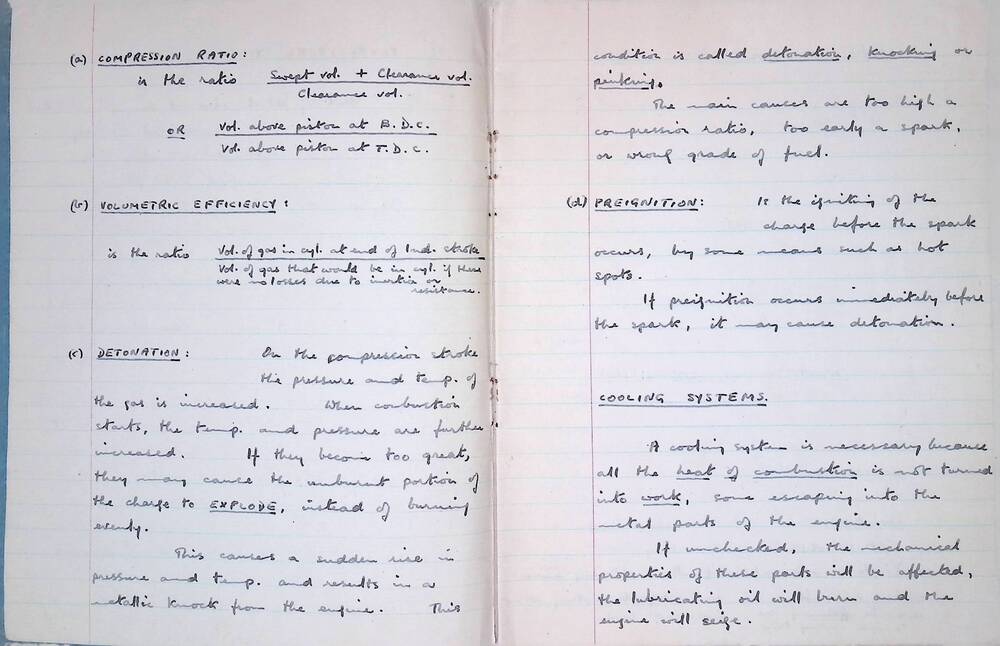 (a) COMPRESSION RATIO:
is the ratio Swept vol. + Clearance vol.
Clearance vol.
OR Vol. above piston at B.D.C.
Vol. above piston at T.D.C.
(b) VOLUMETRIC EFFICIENCY:
is the ratio Vol. of gas in cyl. at end of Ind. stroke
Vol. of gas that would be in cyl. if there
were no losses due to inertia or
resistance.
(c) DETONATION: On the compression stroke
the pressure and temp. of
the gas is increased. When combustion
starts, the temp. and pressure are further
increased. If they become too great,
they may cause the unburnt portion of
the charge to EXPLODE, instead of burning
evenly.
This causes a sudden rise in
pressure and temp. and results in a
metallic knock from the engine. This
condition is called detonation, knocking or
pinking.
The main causes are too high a
compression ratio, too early a spark,
or wrong grade of fuel.
(d) PREIGNITION: Is the igniting of the
charge before the spark
occurs, by some means such as hot
spots.
If preignition occurs immediately before
the spark, it may cause detonation.
COOLING SYSTEMS.
A cooling system is necessary because
all the heat of combustion is not turned
into work, some escaping into the
metal parts of the engine.
If unchecked, the mechanical
properties of these parts will be affected,
the lubricating oil will burn and the
engine will seize.